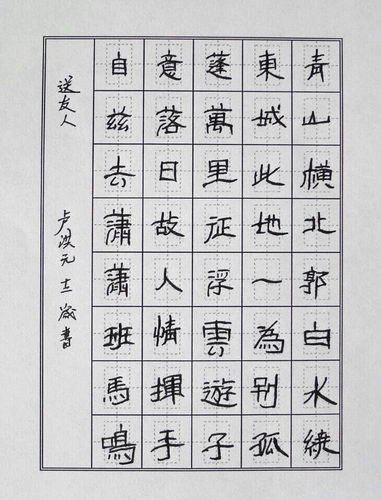 青山橫北郭白水繞
東城此地一為別孤
蓬萬里征浮雲遊子
意落日故人情揮手
自茲去蕭蕭班馬鳴
送友人
卢洪元 十二岁書